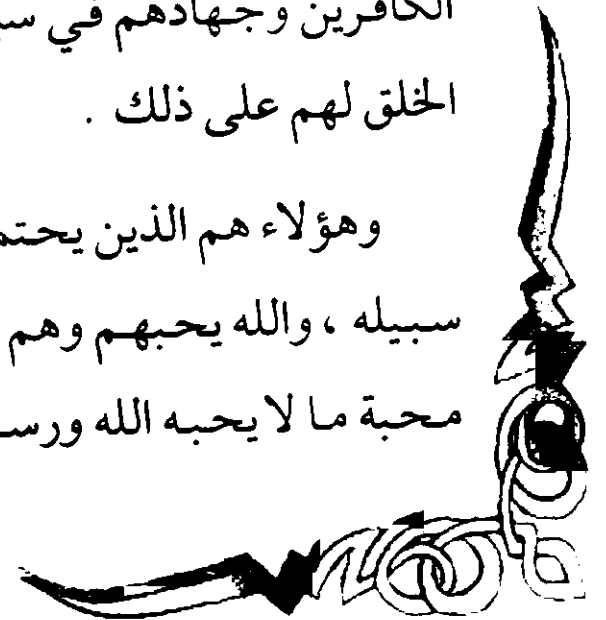 الكافرين وجهادهم في
الخلق لهم على ذلك .
وهؤلاء هم الذين
سبيله ، والله يحبهم وهم
محبة ما لا يحبه الله